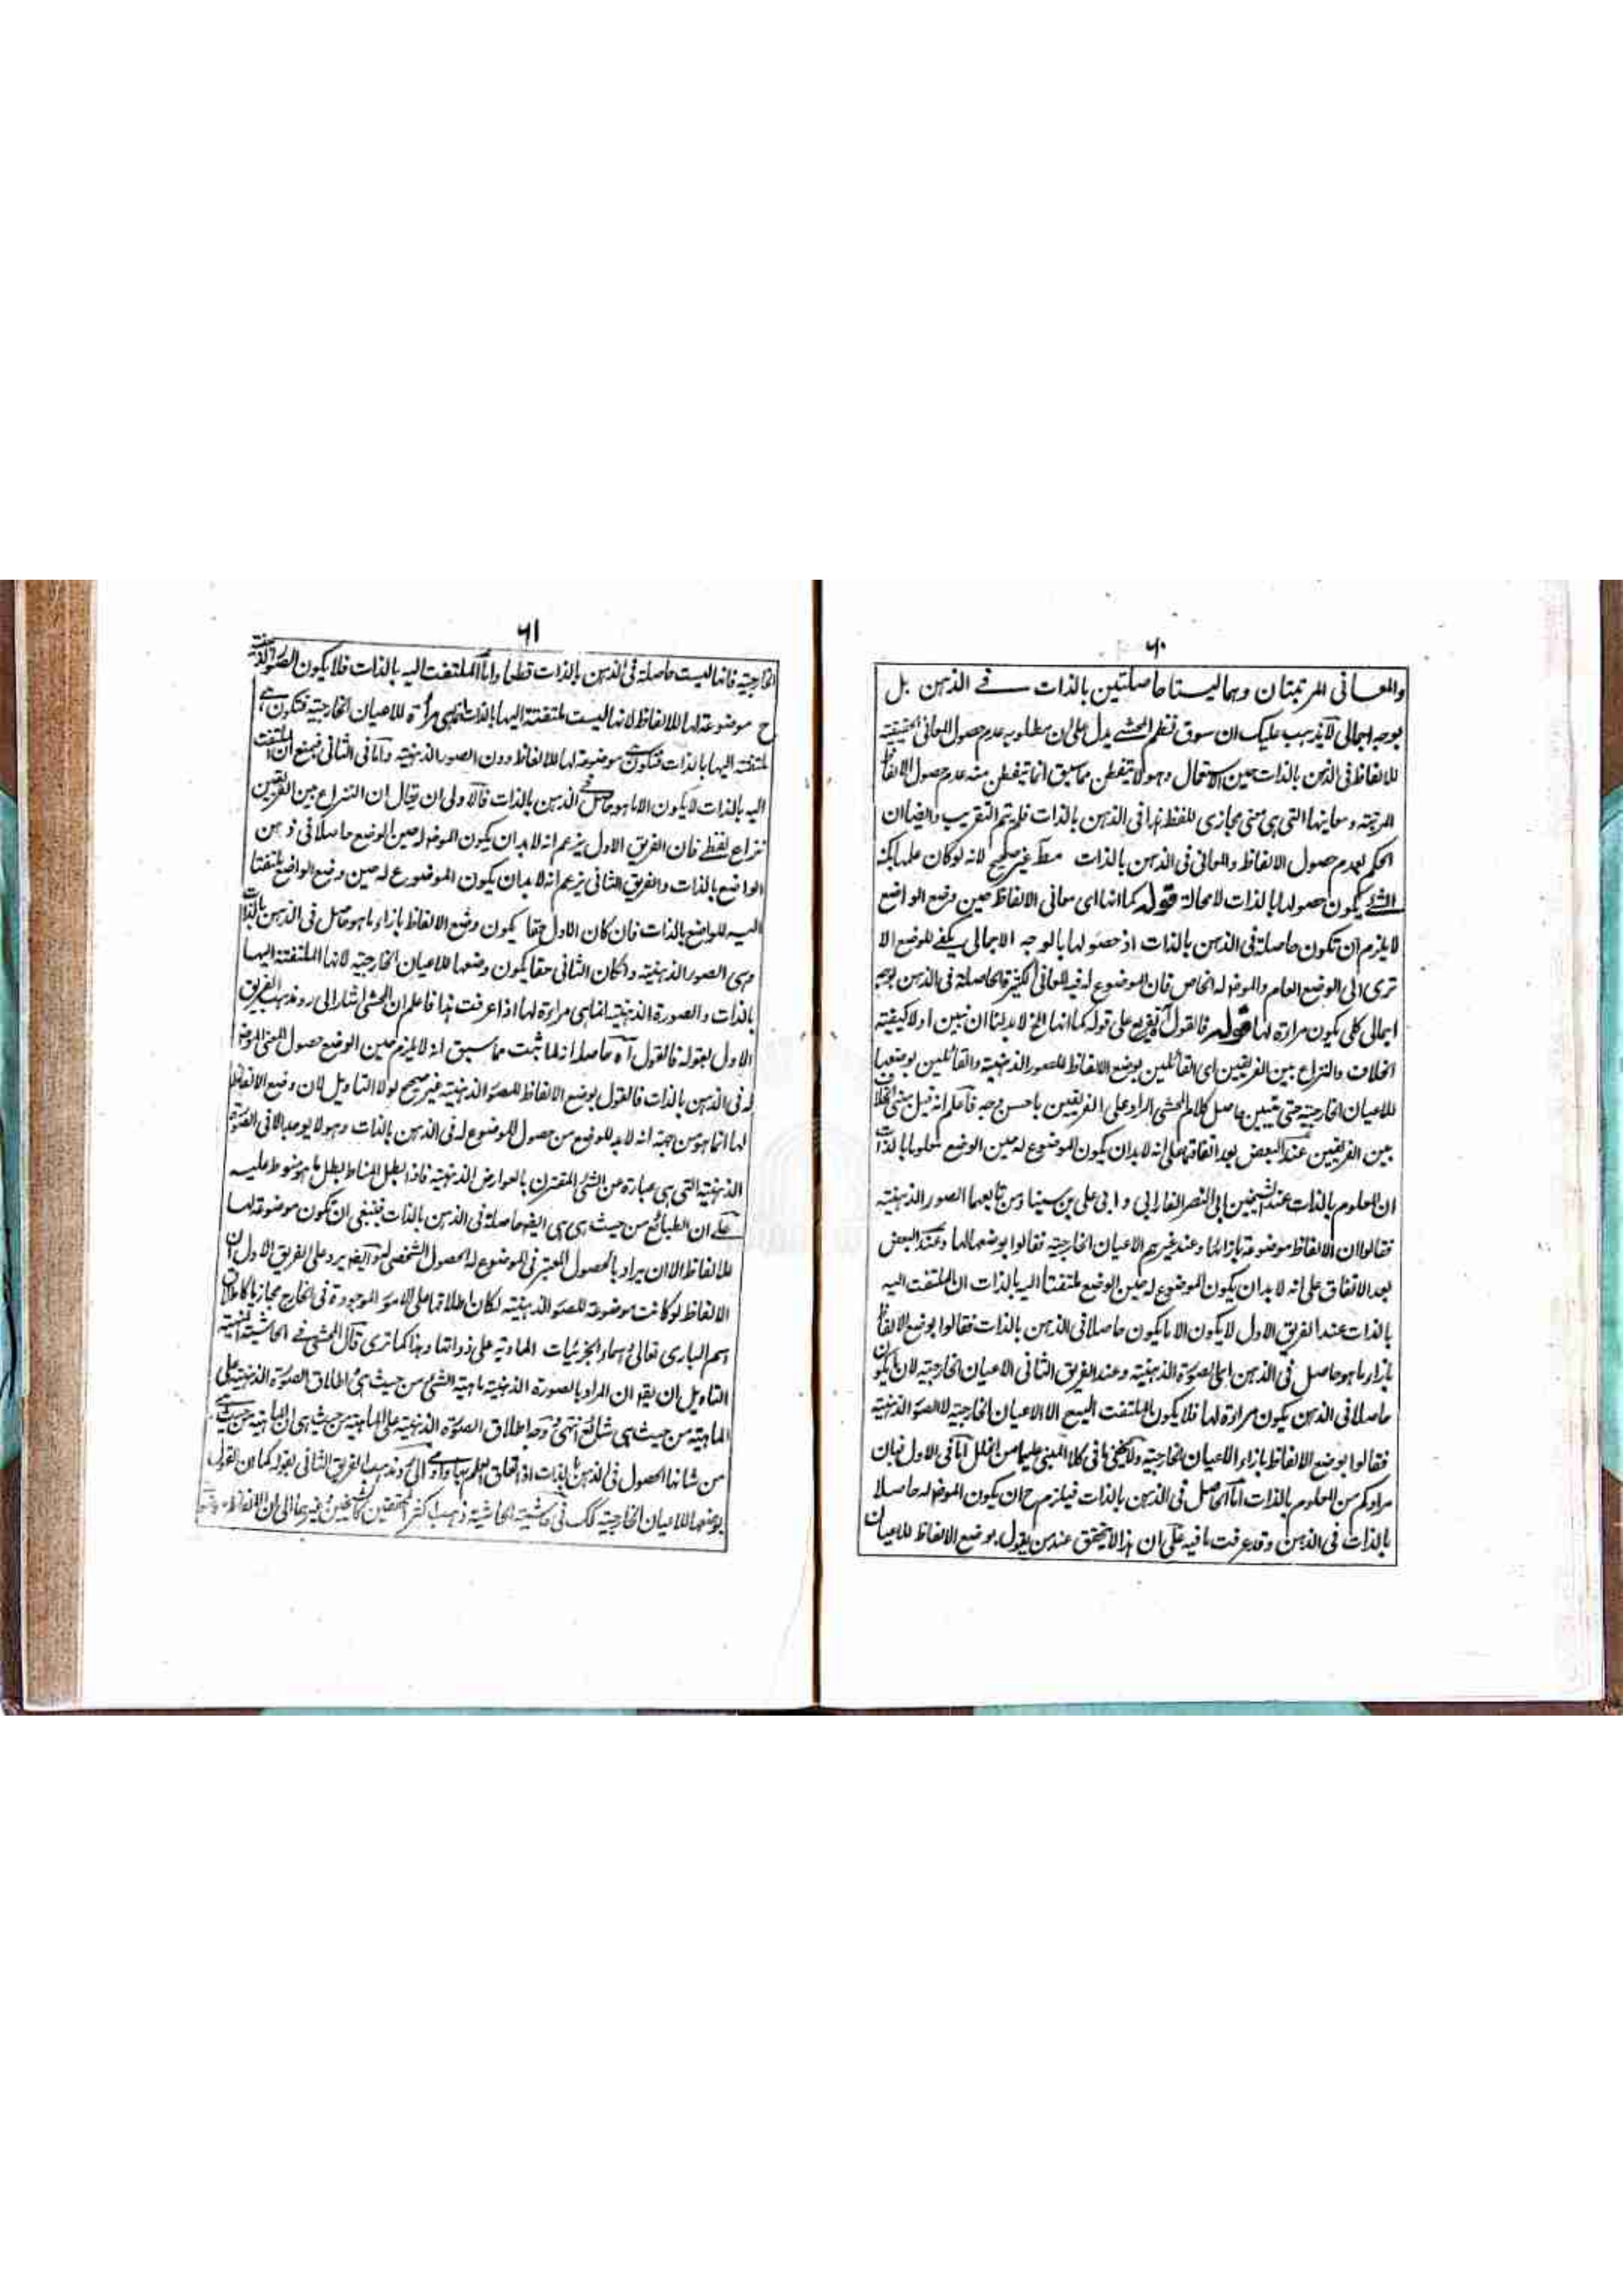 ٦٠
والمعانى المرتبتان وهما ليستا حاصلتين بالذات فى الذهن بل
بوجه اجمالى لا يذهب عليك ان سوق نظم المحشے يدل على ان مطلوبه عدم حصول المعانى الحقيقية
للالفاظ فى الذهن بالذات حين الاستعمال وهو لا يتفطن مما سبق انما يتفطن منه عدم حصول الالفاظ
المرتبة ومعانيها التى هى معنى مجازى للفظ هذا فى الذهن بالذات فلم يتم التقريب وايضا ان
الحكم بعدم حصول الالفاظ والمعانى فى الذهن بالذات مطلقا غير صحيح لانه لو كان علمها بكنه
الشئ يكون حصولها بالذات لا محالة قوله كما انها اى معانى الالفاظ حين وضع الواضع
لا يلزم ان تكون حاصلة فى الذهن بالذات اذ حصولها بالوجه الاجمالى يكفے للوضع الا
ترى الى الوضع العام والموضوع له الخاص فان الموضوع له فيه المعانى الكثيرة الحاصلة فى الذهن بوجه
اجمالى كلى يكون مراءة لها قوله فالقول آه تفريع على قوله كما انها الخ لا بد لنا ان نبين اولا كيفية
الخلاف والنزاع بين الفريقين اى القائلين بوضع الالفاظ للصور الذهنية والقائلين بوضعها
للاعيان الخارجية حتى يتبين حاصل كلام المحشى الراد على الفريقين باحسن وجه فاعلم انه قيل مبنى الخلاف
بين الفريقين عند البعض بعد اتفاقهما على انه لا بد ان يكون الموضوع له حين الوضع معلوما بالذات
ان المعلوم بالذات عند الشيخين ابى النصر الفارابى وابى على بن سينا ومن تابعهما الصور الذهنية
فقالوا ان الالفاظ موضوعة بازائها وعند غيرهم الاعيان الخارجية فقالوا بوضعها لها وعند البعض
بعد الاتفاق على انه لا بد ان يكون الموضوع له حين الوضع ملتفتا اليه بالذات ان الملتفت اليه
بالذات عند الفريق الاول لا يكون الا ما يكون حاصلا فى الذهن بالذات فقالوا بوضع الالفاظ
بازاء ما هو حاصل فى الذهن اى الصورة الذهنية وعند الفريق الثانى الاعيان الخارجية لان ما يكون
حاصلا فى الذهن يكون مراءة لها فلا يكون الملتفت اليه الا الاعيان الخارجية لا الصور الذهنية
فقالوا بوضع الالفاظ بازاء الاعيان الخارجية ولا يخفى ما فى كلا المبنى عليهما من الخلل اما فى الاول فبان
مرادكم من المعلوم بالذات اما الحاصل فى الذهن بالذات فيلزم ح ان يكون الموضوع له حاصلا
بالذات فى الذهن وقد عرفت ما فيه على ان هذا لا يتحقق عند من يقول بوضع الالفاظ للاعيان
٦١
الخارجية فانها ليست حاصلة فى الذهن بالذات قطعا واما الملتفت اليه بالذات فلا يكون الصور الذهنية
ح موضوعة لها للالفاظ لانها ليست ملتفتة اليها بالذات بل هى مراءة للاعيان الخارجية فتكون هى
ملتفتة اليها بالذات فتكون هى موضوعة لها للالفاظ دون الصور الذهنية واما فى الثانى فبمنع ان الملتفت
اليه بالذات لا يكون الا ما هو حاصل فى الذهن بالذات فالاولى ان يقال ان النزاع بين الفريقين
نزاع لفظے فان الفريق الاول يزعم انه لا بد ان يكون الموضوع له حين الوضع حاصلا فى ذهن
الواضع بالذات والفريق الثانى يزعم انه لا بد ان يكون الموضوع له حين وضع الواضع ملتفتا
اليه للواضع بالذات فان كان الاول حقا يكون وضع الالفاظ بازاء ما هو حاصل فى الذهن بالذات
وهى الصور الذهنية وان كان الثانى حقا يكون وضعها للاعيان الخارجية لانها الملتفتة اليها
بالذات والصورة الذهنية انما هى مراءة لها اذا عرفت هذا فاعلم ان المحشى اشار الى رد مذهب الفريق
الاول بقوله فالقول آه حاصله انه لما ثبت مما سبق انه لا يلزم حين الوضع حصول المعنى الموضوع
له فى الذهن بالذات فالقول بوضع الالفاظ للصور الذهنية غير صحيح لولا التاويل لان وضع الالفاظ
لها انما هو من جهة انه لا بد للوضع من حصول الموضوع له فى الذهن بالذات وهو لا يوجد الا فى الصورة
الذهنية التى هى عبارة عن الشئ المقترن بالعوارض الذهنية فاذا بطل المناط بطل ما هو منوط عليه
على ان الطبائع من حيث هى هى ايضا حاصلة فى الذهن بالذات فينبغى ان تكون موضوعة لها
للالفاظ الا ان يراد بالحصول المعتبر فى الموضوع له الحصول الشخصى وايضا يرد على الفريق الاول ان
الالفاظ لو كانت موضوعة للصور الذهنية لكان اطلاقها على الامور الموجودة فى الخارج مجازيا كاطلاق
اسم البارى تعالى واسماء الجزئيات المادية على ذواتها وهذا كما ترى قال المحشى فى الحاشية المنهية
التاويل ان يقو ان المراد بالصورة الذهنية ماهية الشئ من حيث هى واطلاق الصورة الذهنية على
الماهية من حيث هى شائع انتهى وجه اطلاق الصورة الذهنية على الماهية من حيث هى ان الماهية من حيث هى
من شانها الحصول فى الذهن بالذات اذا تعلق العلم بها والى رد مذهب الفريق الثانى بقوله كما ان القول
بوضعها للاعيان الخارجية كك فى حاشية الحاشية ذهب اكثر المحققين كالشيخين وغيرهما الى ان الالفاظ